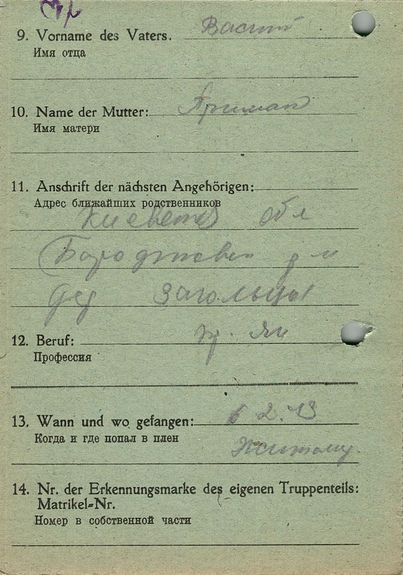 9. Vorname des Vaters.
Имя отца
10. Name der Mutter:
Имя матери
11. Anschrift der nächsten Angehörigen:
Адрес ближайших родственников
обл
дер Загольцы
12. Beruf:
Профессия
13. Wann und wo gefangen: 2. 43
Когда и где попал в плен
Житому.
14. Nr. der Erkennungsmarke des eigenen Truppenteils:
Matrikel-Nr.
Номер в собственной части